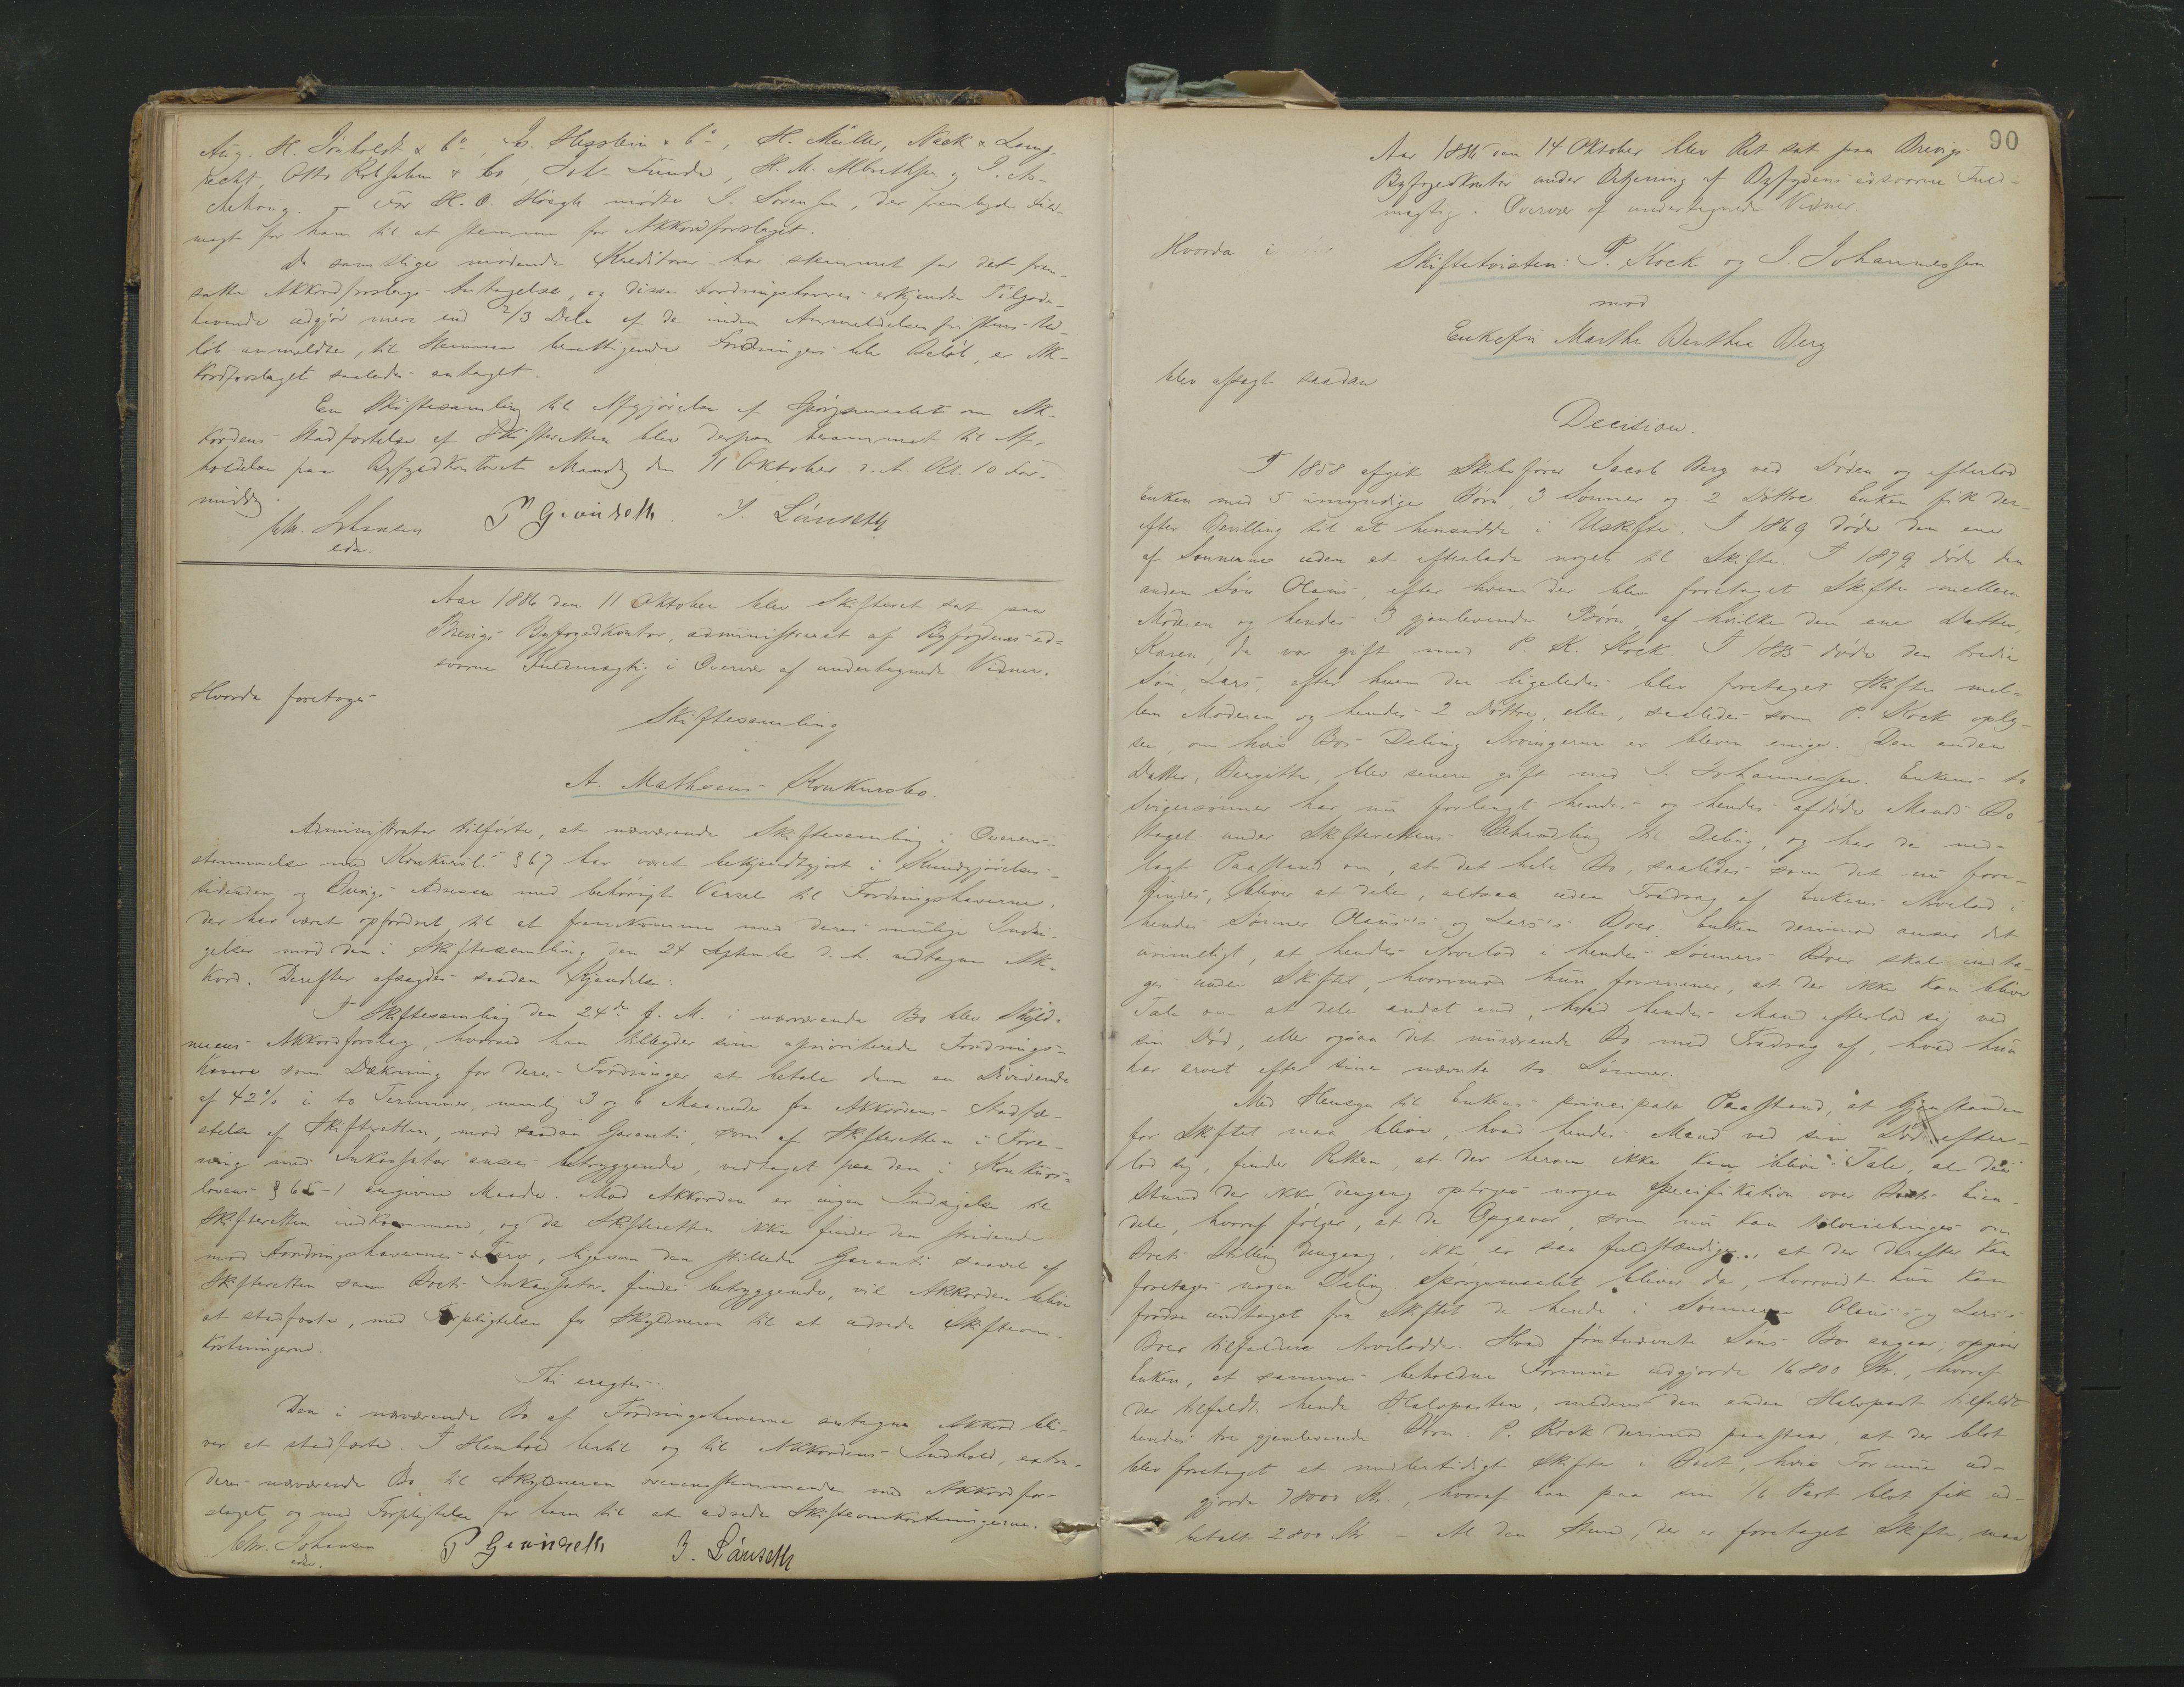 Aug. H. Dünholdt & Co, J. Hesslein & Co, H. Müller, Neck & Lamp-
recht, Otto Rolfsohn & Co, Joh. Funder, H. M. Albrethsen og
For H. O. Høegh mødte J. Sørensen, der fremlagde Fuld-
magt for ham til at stemme for Akkordforslaget.
Da samtlige mødende Kreditorer har stemmet for det frem-
satte Akkordforslags Antagelse, og disse Fordringshaveres erkjendte Tilgode-
havende udgjør mere end 2/3 Dele af de inden Anmeldelsesfristens Ud-
løb anmeldte, til Stemme berettigende Fordringers hele Beløb, er Ak-
kordforslaget saaledes antaget.
En Skiftesamling til Afgjørelse af Spørgsmaalet om Ak-
kordens Stadfæstelse af Skifteretten blev derpaa berammet til Af-
holdelse paa Byfogedkontoret Mandag den 11 Oktober d. A. Kl. 10 For-
middag.
Chr. Johansen P Grovdseth. J. Lønseth
edsv.
Aar 1886 den 11 Oktober blev Skifteret sat paa
Brevigs Byfogedkontor, administreret af Byfogdens ed-
svorne Fuldmægtig i Overvær af undertegnede Vidner.
Hvorda foretoges
Skiftesamling
i
A. Mathsens Konkursbo.
Administrator tilførte, at nærværende Skiftesamling i Overens-
stemmelse med Konkursl.s § 67 har været bekjendtgjort i Kundgjørelses-
tidenden og Brevigs Adresse med behørigt Varsel til Fordringshaverne,
der har været opfordret til at fremkomme med deres mulige Indsi-
gelser mod den i Skiftesamling den 24 September d. A. vedtagne Ak-
kord. Derefter afsagdes saadan Kjendelse:
I Skiftesamling den 24de f. M. i nærværende Bo blev Skyld-
nerens Akkordforslag, hvorved han tilbyder sine uprioriterede Fordrings-
havere som Dækning for deres Fordringer at betale dem en Dividende
af 42% i to Terminer, nemlig 3 og 6 Maaneder fra Akkordens Stadfæ-
stelse af Skifteretten, mod saadan Garanti, som af Skifteretten i Fore-
ning med Inkassator ansees betryggende, vedtaget paa den i Konkurs-
lovens § 65-1 angivne Maade. Mod Akkorden er ingen Indsigelse til
Skifteretten indkommen, og da Skifteretten ikke finder den stridende
mod Fordringshavernes Tarv, ligesom den stillede Garanti saavel af
Skifteretten som Boets Inkassator findes betryggende, vil Akkorden blive
at stadfæste, med Forpligtelse for Skyldneren til at udrede Skifteom-
kostningerne.
Thi eragtes:
Den i nærværende Bo af Fordringshaverne antagne Akkord bli-
ver at stadfæste. I Henhold hertil og til Akkordens Indhold, extra-
deres nærværende Bo til Skyldneren overensstemmende med Akkordfor-
slaget og med Forpligtelse for ham til at udrede Skifteomkostningerne.
Chr. Johansen P Grovdseth J. Lønseth
edsv.
90
Aar 1886 den 14 Oktober blev Ret sat paa Brevigs
Byfogedkontor under Betjening af Byfogdens edsvorne Fuld-
mægtig. Overvær af undertegnede Vidner.
Hvorda i
Skiftetvisten: P. Kock og J. Johannessen
mod
Enkefru Marthe Berthea Berg
blev afsagt saadan
Decision.
I 1858 afgik Skibsfører Jacob Berg ved Døden og efterlod
Enken med 5 umyndige Børn, 3 Sønner og 2 Døttre. Enken fik der-
efter Bevilling til at hensidde i Uskifte. I 1869 døde den ene
af Sønnerne uden at efterlade noget til Skifte. I 1879 døde den
anden Søn Olaus, efter hvem der blev foretaget Skifte mellem
Moderen og hendes 3 gjenlevende Børn, af hvilke den ene Datter,
Karen, da var gift med P. K. Kock. I 1885 døde den tredie
Søn, Lars, efter hvem der ligeledes blev foretaget Skifte mel-
lem Moderen og hendes 2 Døttre, eller, saaledes som P. Kock oply-
ser, om hvis Bos Deling Arvingerne er bleven enige. Den anden
Datter, Birgitte, blev senere gift med J. Johannessen. Enkens to
Svigersønner har nu forlangt hendes og hendes afdøde Mands Bo
taget under Skifterettens Behandling til Deling, og har de ned-
lagt Paastand om, at det hele Bo, saaledes som det nu fore-
findes, bliver at dele, altsaa uden Fradrag af Enkens Arvelod i
hendes Sønner Olaus's og Lars's Boer. Enken derimod anser det
urimeligt, at hendes Arvelod i hendes Sønners Boer skal indta-
ges under Skiftet, hvorimod hun formener, at der ikke kan blive
Tale om at dele andet end, hvad hendes Mand efterlod sig ved
sin Død, eller ogsaa det nuværende Bo med Fradrag af, hvad hun
har arvet efter sine nævnte to Sønner.
Med Hensyn til Enkens principale Paastand, at Gjenstanden
for Skiftet maa blive, hvad hendes Mand ved sin Død efter-
lod sig, finder Retten, at der herom ikke kan blive Tale, al den
Stund der ikke dengang optoges nogen Specifikation over Boets Eien-
dele, hvoraf følger, at de Opgaver, som nu kan tilveiebringes om
Boets Stilling dengang, ikke er saa fuldstændige, at der derefter kan
foretages nogen Deling. Spørgsmaalet bliver da, hvorvidt hun kan
fordre undtaget fra Skiftet de hende i Sønnerne Olaus's og Lars's
Boer tilfaldne Arvelodde. Hvad førstnævnte Søns Bo angaar, opgiver
Enken, at sammes beholdne Formue udgjorde 16800 Kr., hvoraf
der tilfaldt hende Halvparten, medens den anden Halvpart tilfaldt
hendes tre gjenlevende Børn. P. Kock derimod paastaar, at der blot
blev foretaget et midlertidigt Skifte i Boet, hvis Formue ud-
gjorde 78000 Kr., hvoraf han paa sin 1/6 Part blot fik ud-
betalt 2800 Kr. – Al den Stund, der er foretaget Skifte, maa